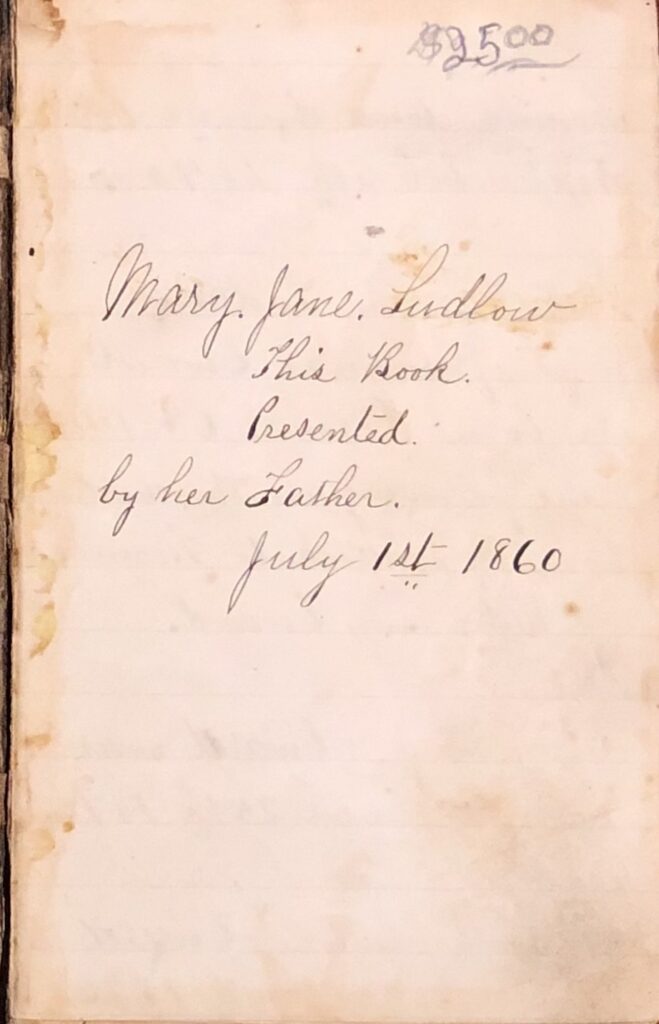 $25.00
Mary. Jane. Ludlow
This Book.
Presented.
by her Father.
July 1st 1860